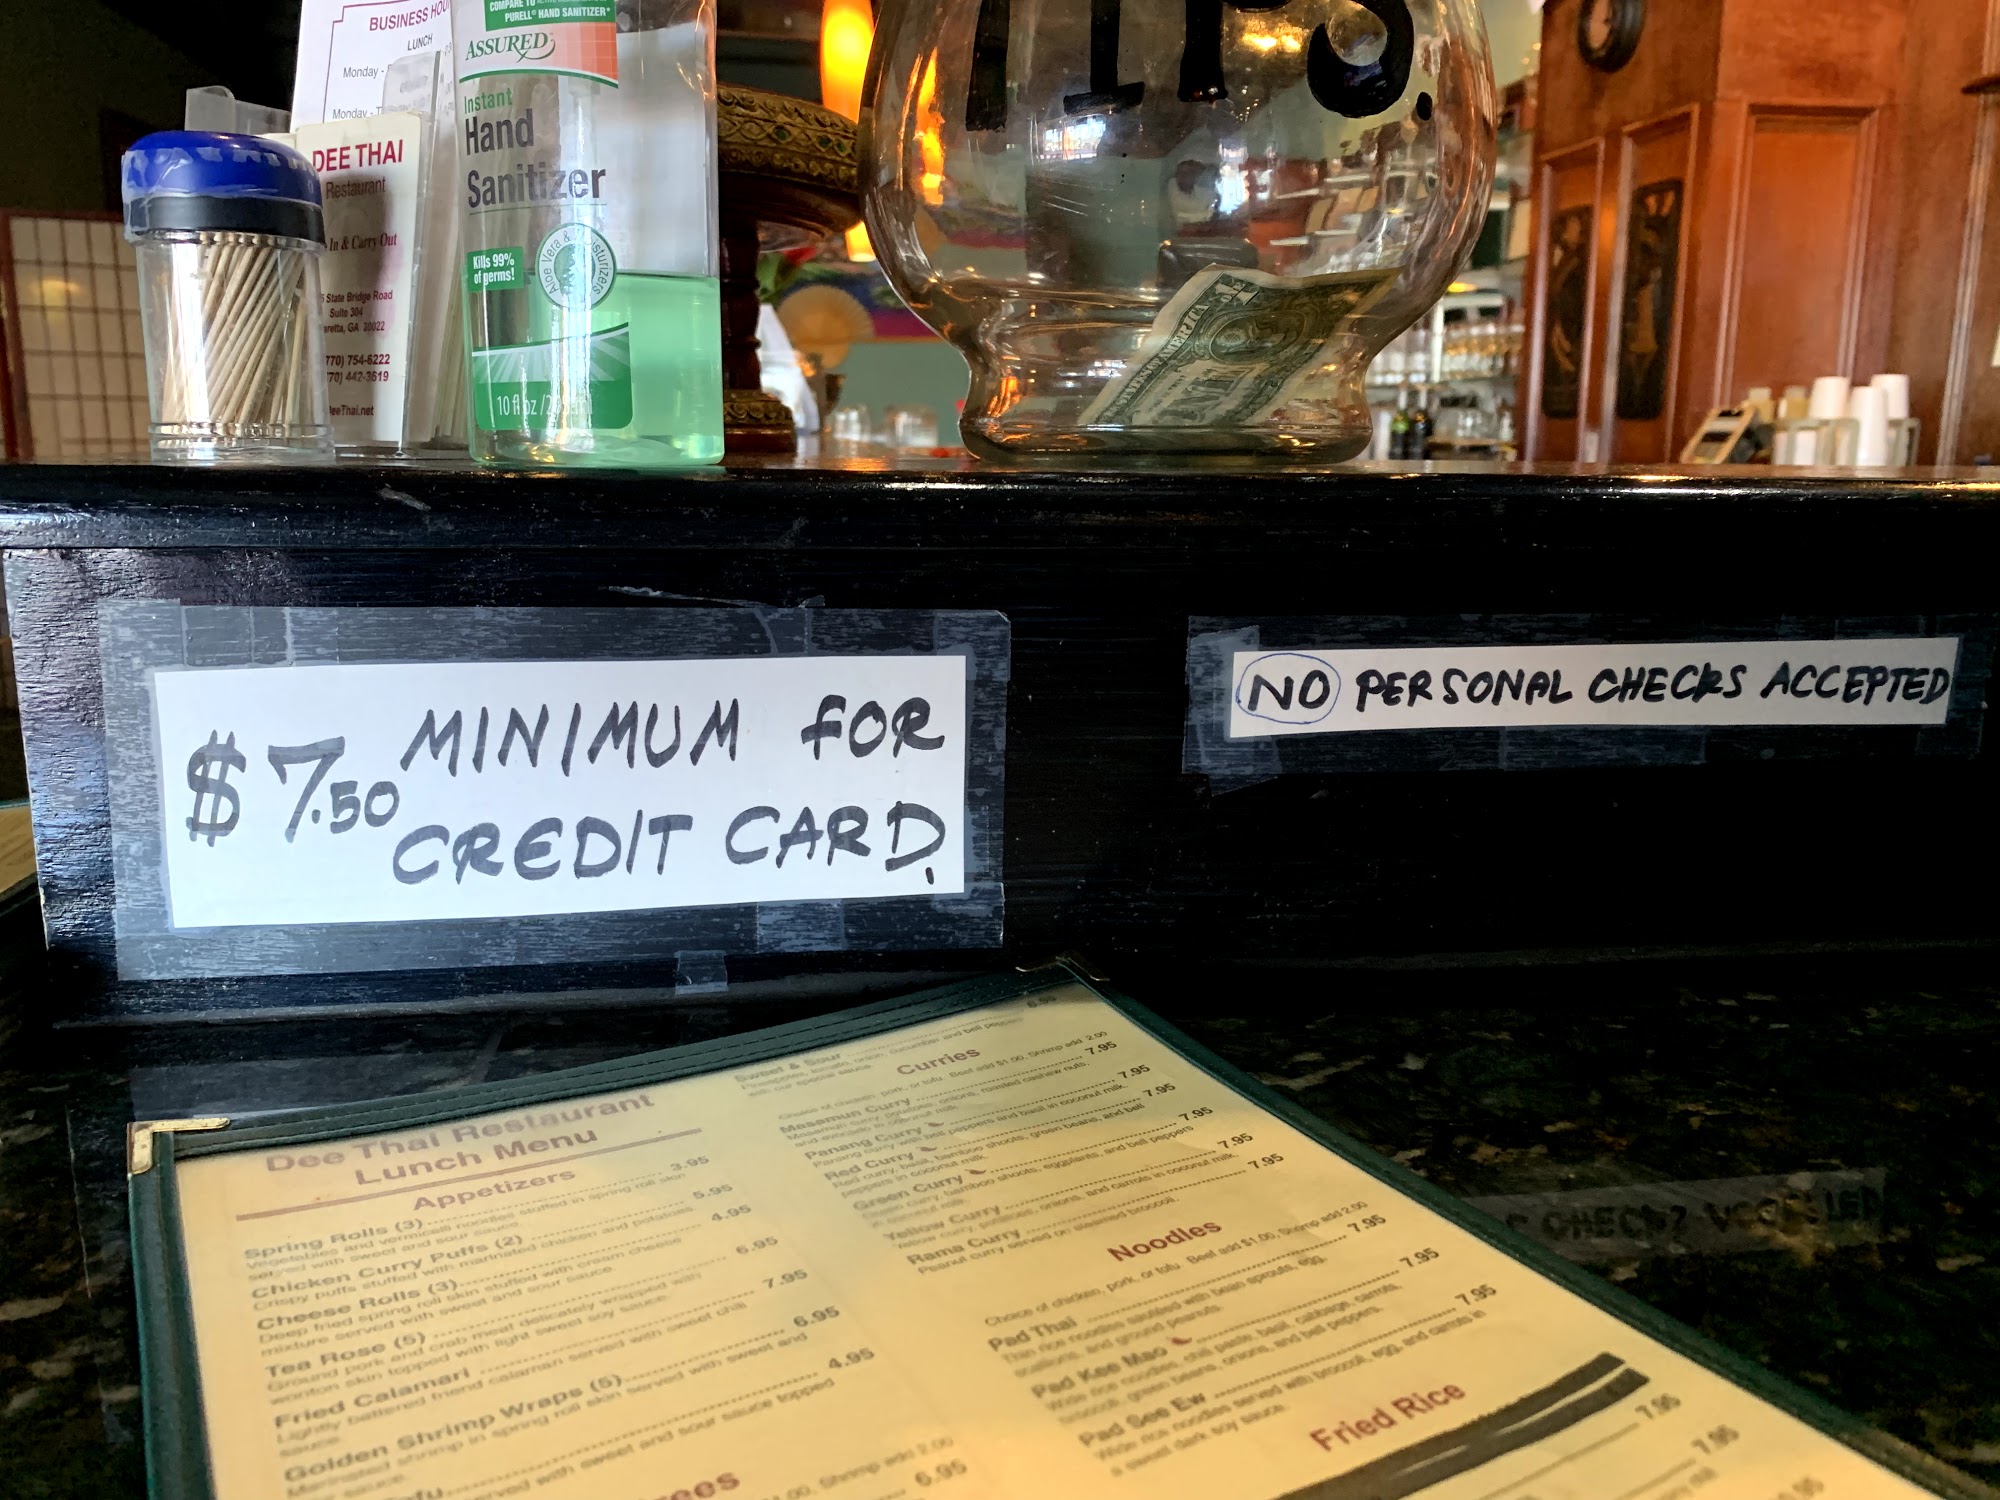 BUSINESS HOU
LUNCH
Monday -
Monday -
DEE THAI
Restaurant
In & Carry Out
State Bridge Road
Suite 304
retta, GA 30022
770) 754-6222
70) 442-3619
DeeThai.net
COMPARE TO ACTIVE
PURELL® HAND SANITIZER*
ASSURED
Instant
Hand
Sanitizer
Kills 99%
of germs!
Aloe Vera &
10 fl oz
TIPS.
$7.50 MINIMUM FOR
CREDIT CARD.
NO PERSONAL CHECKS ACCEPTED
Dee Thai Restaurant
Lunch Menu
Appetizers
Spring Rolls (3) 3.95
Vegetables and vermicelli noodles stuffed in spring roll skin
served with sweet and sour sauce.
Chicken Curry Puffs (2) 5.95
Crispy puffs stuffed with marinated chicken and potatoes
Cheese Rolls (3) 4.95
Deep fried spring roll skin stuffed with cream cheese
mixture served with sweet and sour sauce.
Tea Rose (5) 6.95
Ground pork and crab meat delicately wrapped with
wonton skin topped with light sweet soy sauce.
Fried Calamari 7.95
Lightly battered friend calamari served with sweet chili
sauce.
Golden Shrimp Wraps (5) 6.95
Marinated shrimp in spring roll skin served with sweet and
sauce.
4.95
served with sweet and sour sauce topped
Shrimp add 2.00
6.95
6.95
Sweet & Sour
Pineapples, tomato, onion, cucumber and bell peppers
with our special sauce.
Curries
Choice of chicken, pork, or tofu. Beef add $1.00, Shrimp add 2.00
Masamun Curry 7.95
Masamun curry, potatoes, onions, roasted cashew nuts,
and avocado in coconut milk.
Panang Curry 7.95
Panang curry with bell peppers and basil in coconut milk.
Red Curry 7.95
Red curry, basil, bamboo shoots, green beans, and bell
peppers in coconut milk.
Green Curry 7.95
Green curry, bamboo shoots, eggplants, and bell peppers
in coconut milk.
Yellow Curry 7.95
Yellow curry, potatoes, onions, and carrots in coconut milk.
Rama Curry 7.95
Peanut curry served on steamed broccoli.
Noodles
Choice of chicken, pork, or tofu. Beef add $1.00, Shrimp add 2.00
Pad Thai 7.95
Thin rice noodles sautéed with bean sprouts, egg,
scallions, and ground peanuts.
Pad Kee Mao 7.95
Wide rice noodles, chili paste, basil, cabbage, carrots,
broccoli, green beans, onions, and bell peppers.
Pad See Ew 7.95
Wide rice noodles served with broccoli, egg, and carrots in
a sweet dark soy sauce.
Fried Rice
7.95
7.95